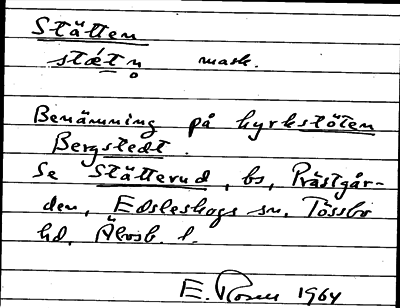 Stätten
stǽtn̥ mask.
Benämning på kyrkstöten
Bergstedt.
Se Stätterud, bs, Prästgår-
den, Edsleskogs sn, Tössbo
hd, Älvsb. l.
E. Rosen 1964